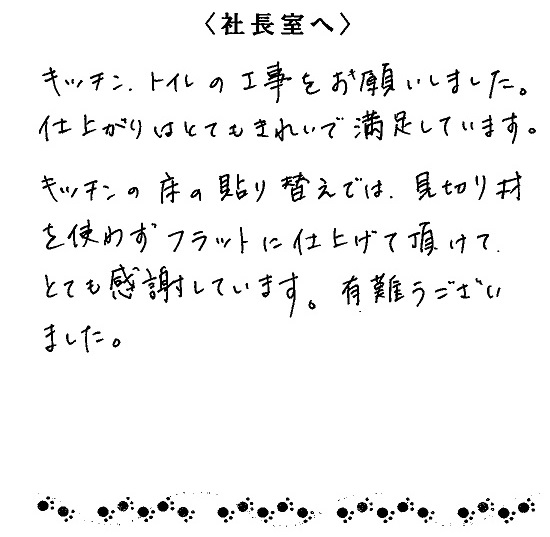 〈社長室へ〉
キッチン、トイレの工事をお願いしました。
仕上がりはとてもきれいで満足しています。
キッチンの床の貼り替えでは、見切り材
を使わずフラットに仕上げて頂けて、
とても感謝しています。有難うござい
ました。